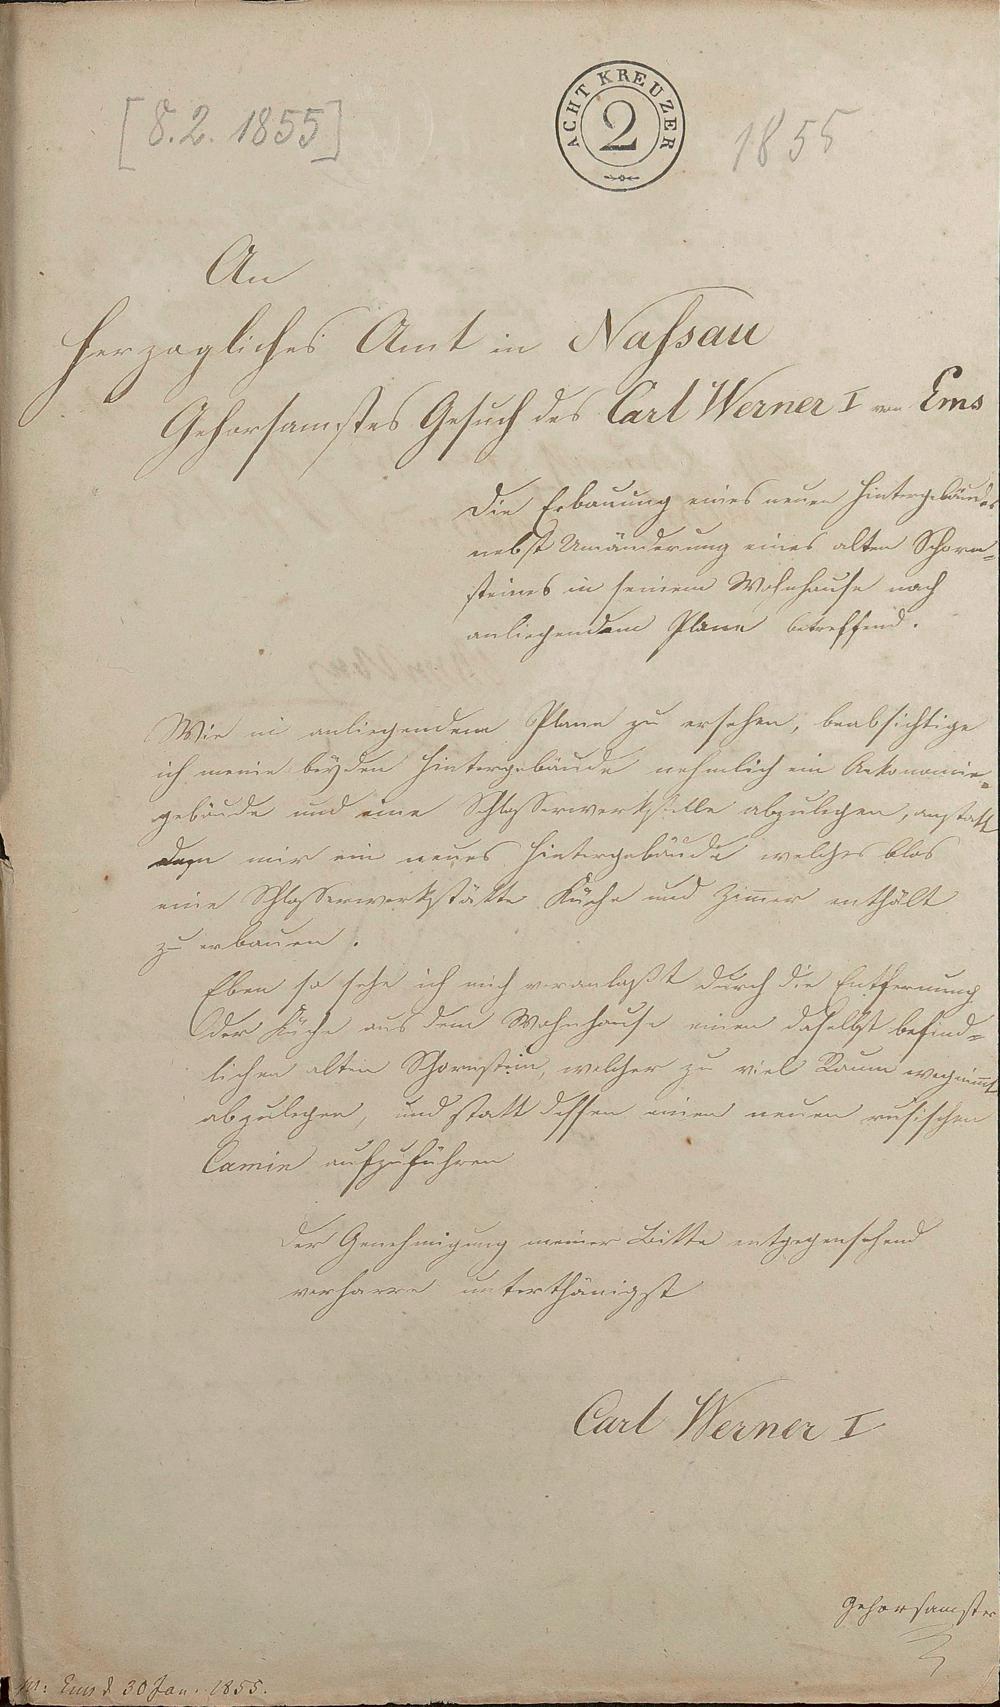 [8.2. 1855]
ACHT KREUZER
2
1855
An
Herzogliches Amt in Naſsau
Gehorsamstes Gesuch des Carl Werner I von Ems
Die Erbauung eines neuen Hintergebäudes
nebst Umänderung eines alten Schorn=
steines in seinem Wohnhause nach
anliegendem Plane betreffend.
Wie in anliegendem Plane zu ersehen, beabsichtige
ich meine beyden Hintergebäude nehmlich ein Oekonomie=
gebäude und eine Schlosserwerkstelle abzulegen, anstatt
mir ein neues Hintergebäude welches blos
eine Schlosserwerkstätte Küche und Zimmer enthält
zu erbauen.
Eben so sehe ich mich veranlaßt durch die Entfernung
der Küche aus dem Wohnhause einen daselbst befind=
lichen alten Schornstein, welcher zu viel Raum wegnimmt
abzulegen, und statt dessen einen neuen rusischen
Camin aufzuführen
Der Genehmigung meiner Bitte entgegensehend
verharre unterthänigst
Carl Werner I
Gehorsamster
Ems d 30 Jan. 1855.